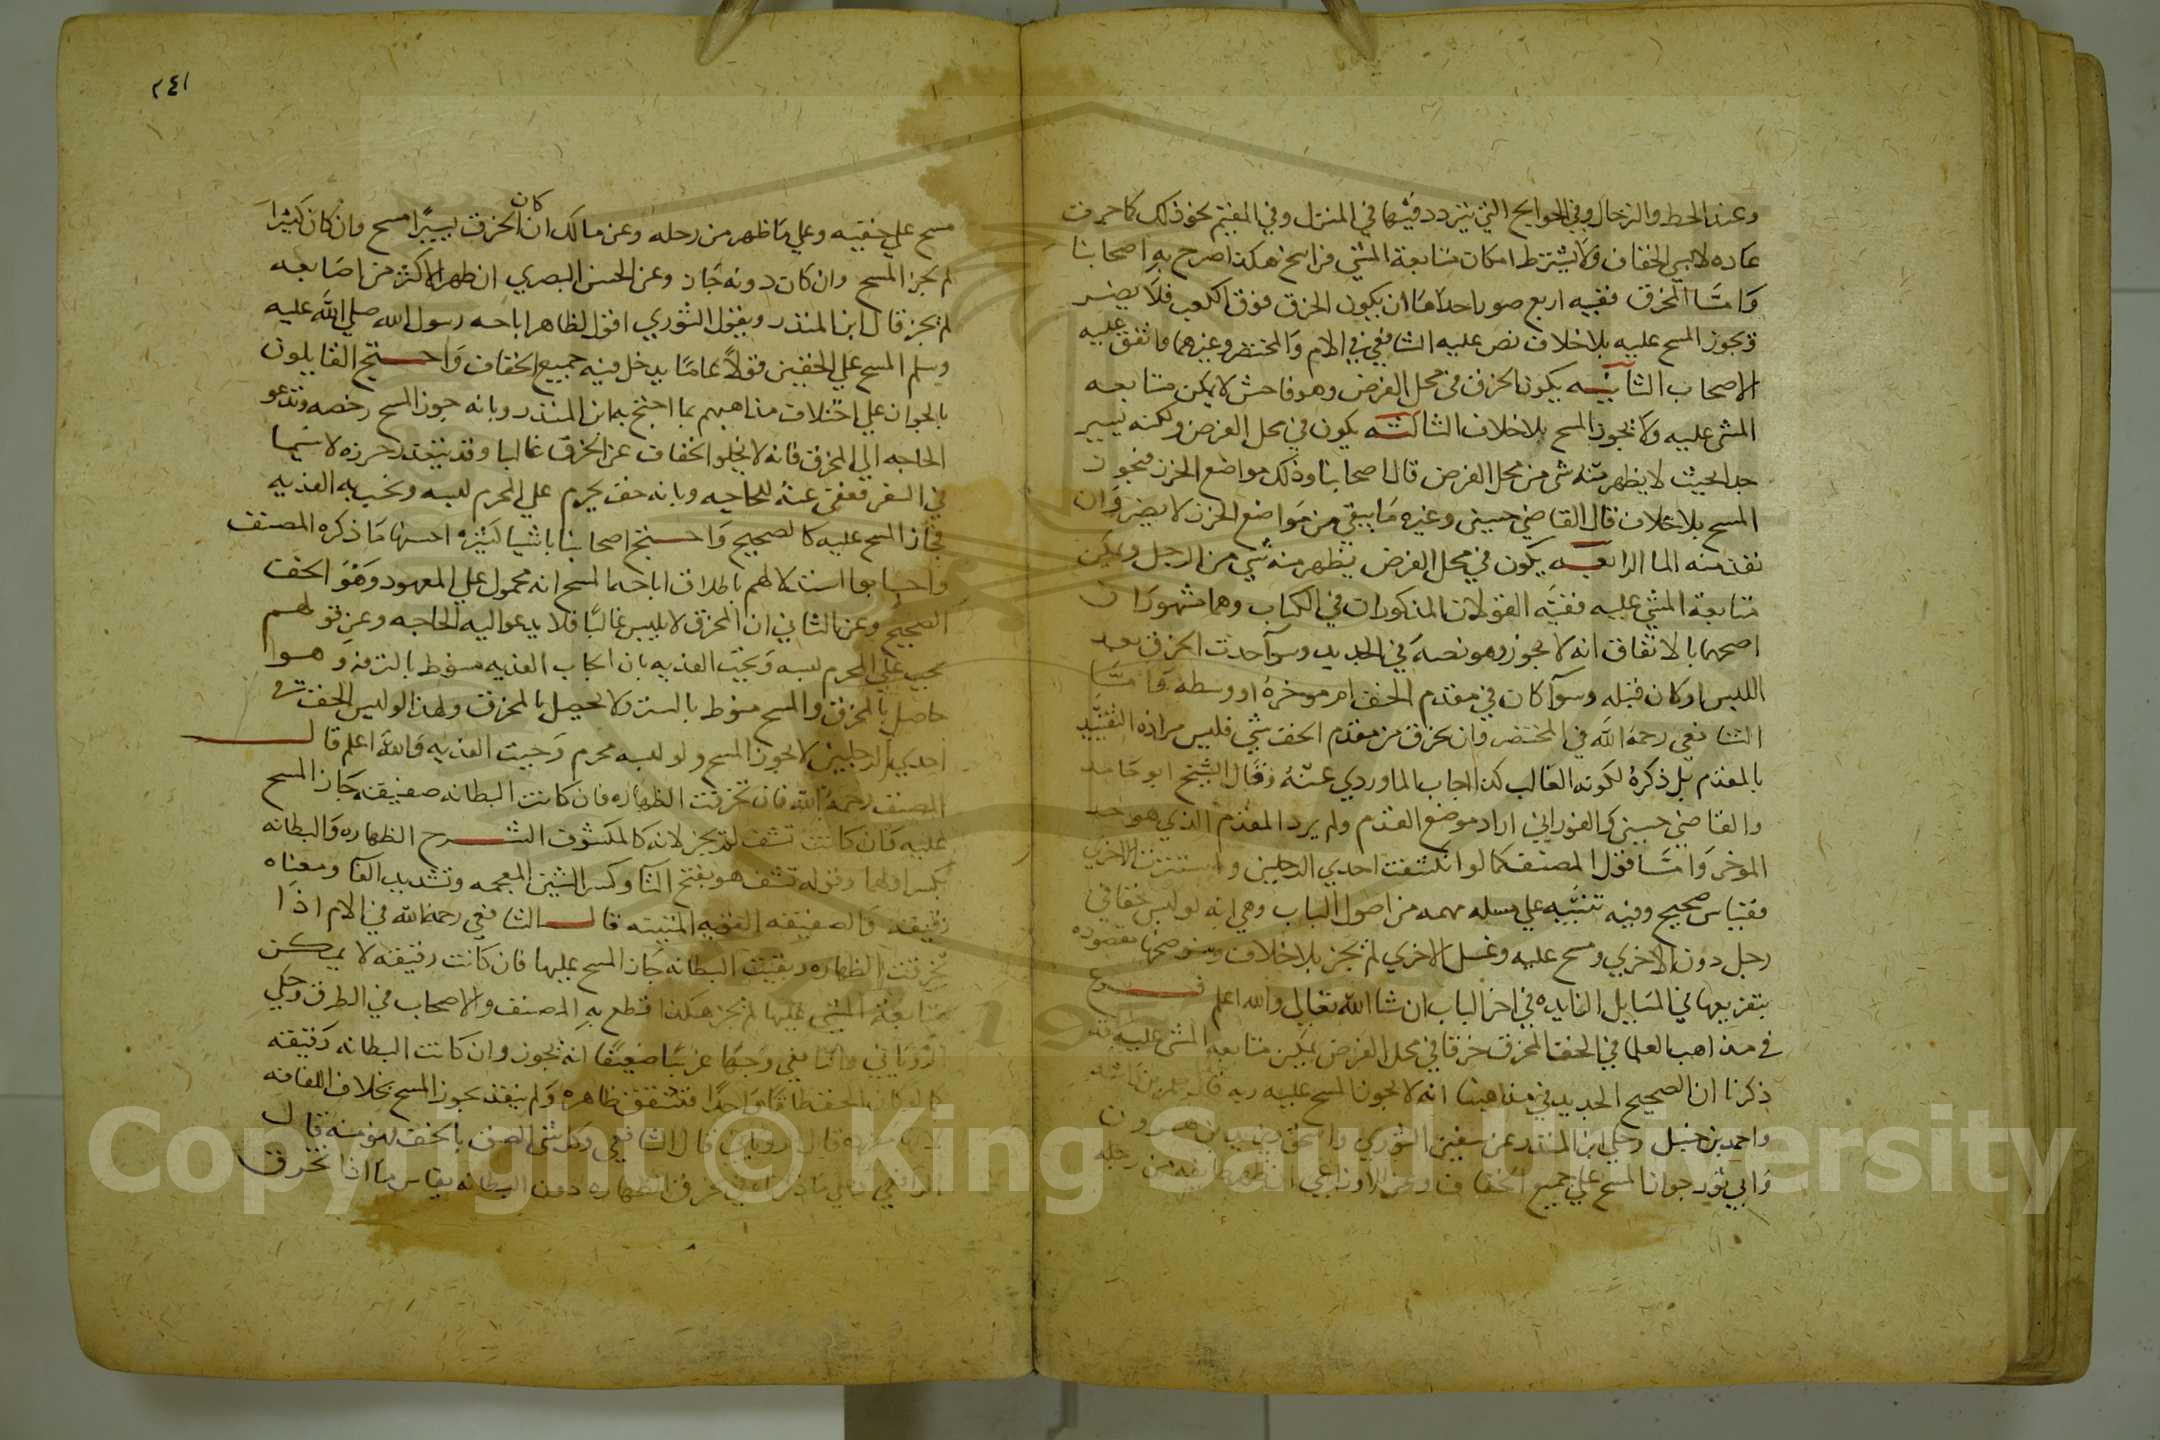 وعند الحط والترحال وفي الحوايج التي يتردد فيها في المنزل وفي المقيم نحو ذلك كما جرت
عاده لابسي الخفاف ولا يشترط امكان متابعة المشي فراسخ هكذا صرح به اصحابنا
وامّا المخرق ففيه اربع صور احداها ان يكون الخرق فوق الكعب فلا يضر
ويجوز المسح عليه بلا خلاف نص عليه الشافعي في الام والمختصر وغيرهما واتفق عليه
الاصحاب الثانيه يكون الخرق في محل الفرض وهو فاحش لا يمكن متابعه
المشي عليه ولا يجوز المسح بلا خلاف الثالثه يكون في محل الفرض ولكنه يسير
جدا بحيث لا يظهر منه شي من محل الفرض قال اصحابنا وذلك مواضع الخرز فيجوز
المسح بلا خلاف قال القاضي حسين وغيره ما يبقي من مواضع الخرز لا يضر وان
نفذ منه الما الرابعه يكون في محل الفرض يظهر منه شي من الرجل ويمكن
متابعة المشي عليه ففيه القولان المذكوران في الكتاب وهما مشهوران
اصحهما بالاتفاق انه لا يجوز وهو نصه في الجديد وسوآ حدث الخرق بعد
اللبس او كان قبله وسوآ كان في مقدم الخف او موخره او وسطه وامّا
الشافعي رحمه الله في المختصر وان تخرق من مقدم الخف شي فليس مراده التقييد
بالمقدم بل ذكره لكونه الغالب كذا اجاب الماوردي عنه وقال الشيخ ابو حامد
والقاضي حسين والفوراني اراد موضع القدم ولم يرد المقدم الذي هو ضد
الموخر وامّا قول المصنف كما لو انكشفت احدي الرجلين واستترت الاخري
فقياس صحيح وفيه تنبيه علي مسله مهمه من اصول الباب وهي انه لو لبس خفا في
رجل دون الاخري ومسح عليه وغسل الاخري لم يجز بلا خلاف وسنوضحها مقصوده
بتفريعها في المسايل الزايده في اخر الباب ان شا الله تعالي والله اعلم فرع
في مذاهب العلما في الخف المخرق خرقا في محل الفرض يمكن متابعة المشي عليه قد
ذكرنا ان الصحيح الجديد في مذهبنا انه لا يجوز المسح عليه وبه قال معمر بن راشد
واحمد بن حنبل وحكي ابن المنذر عن سفين الثوري واسحق ويزيد بن هرون
وابي ثور جواز المسح علي جميع الخفاف وعن الاوزاعي ان ظهرت طايفه من رجله
٢٤١
مسح علي خفيه وعلي ما ظهر من رجله وعن مالك ان كان الخرق يسيرًا مسح وان كان كثيرًا
لم يجز المسح وان كان دونه جاز وعن الحسن البصري ان ظهر الاكثر من اصابعه
لم يجز قال ابن المنذر وبقول الثوري اقول لظاهر اباحه رسول الله صلي الله عليه
وسلم المسح علي الخفين قولاً عامًا يدخل فيه جميع الخفاف واحتج القايلون
بالجواز علي اختلاف مذاهبهم بما احتج به ابن المنذر وبانه جوز المسح رخصه وتدعو
الحاجه الي المخرق فانه لا يخلوا الخفاف عن الخرق غالبا وقد يتعذر خرزه لا سيما
في السفر فعفي عنه للحاجه وبانه خف يحرم علي المحرم لبسه وتجب به الفديه
فجاز المسح عليه كالصحيح واحتج اصحابنا باشيا كثيره احسنها ما ذكره المصنف
واجابوا استدلالهم باطلاق اباحه المسح انه محمول علي المعهود وهو الخف
الصحيح وعن الثاني ان المخرق لا يلبس غالبًا فلا يدعوا اليه الحاجه وعن قولهم
يجب علي المحرم لبسه وتجب الفديه بان ايجاب الفديه منوط بالترفه وهوا
حاصل بالمخرق والمسح منوط بالستر ولا يحصل بالمخرق ولهذا لو لبس الخف في
احدي الرجلين لا يجوز المسح ولو لبسه محرم وجبت الفديه والله اعلم قال
المصنف رحمه الله فان تخرقت الظهاره فان كانت البطانه صفيقه جاز المسح
عليه وان كانت تشف لم يجز لانه كالمكشوف الشرح الظهاره والبطانه
بكسر اولهما وقوله تشف هو بفتح التآ وكسر الشين المعجمه وتشديد الفآ ومعناه
رقيقه والصفيقه القويه المتينه قال الشافعي رحمه الله في الام اذا
تخرقت الظهاره وبقيت البطانه جاز المسح عليها فان كانت رقيقه لا يمكن
متابعة المشي عليها لم يجز هكذا قطع به المصنف والاصحاب في الطرق وحكي
الروياني والرافعي وجها غريبًا ضعيفًا انه يجوز وان كانت البطانه رقيقه
كما لو كان الخف طاقا واحدًا فتشقق ظاهره ولم ينفذ يجوز المسح بخلاف اللفافه
قال الروياني قال الشافعي وكل شي الصق بالخف فهو منه قال
الرافعي وعلي ما ذكرناه في تخرق الظهاره دون البطانه يقاس ما اذا تخرق